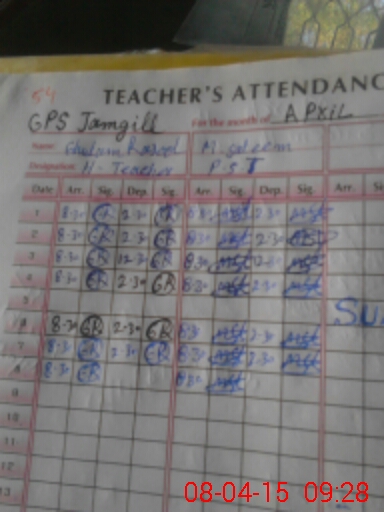 54
TEACHER'S ATTENDANC
GPS Jamgill For the month of APRIL
Name Ghulam Rasool M. Saleem
Designation H. Teacher P.S.T
Date Arr. Sig. Dep. Sig. Arr. Sig. Dep. Sig. Arr. Si
1 8-30 GR 2-30 GR 8-30 2-30
2 8-30 GR 2-30 GR 8-30 2-30
3 8-30 GR 12-30 GR 8-30 12-30
4 8-30 GR 2-30 GR 8-30 2-30
5 SU
6 8-30 GR 2-30 GR 8-30 2-30
7 8-30 GR 2-30 GR 8-30 2-30
8 8-30 GR 8-30
9
10
11
12
13
08-04-15 09:28